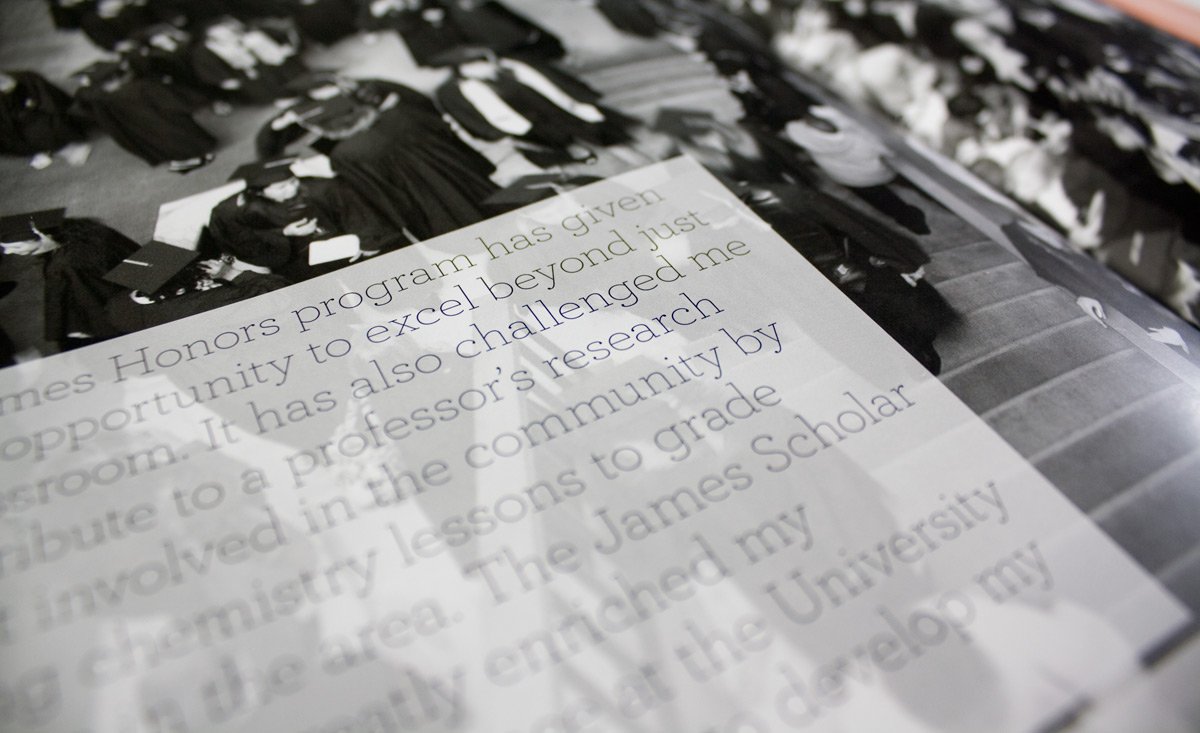 mes Honors program has given
opportunity to excel beyond just
ssroom. It has also challenged me
ribute to a professor's research
t involved in the community by
g chemistry lessons to grade
n the area. The James Scholar
ently enriched my
at the University
develop my